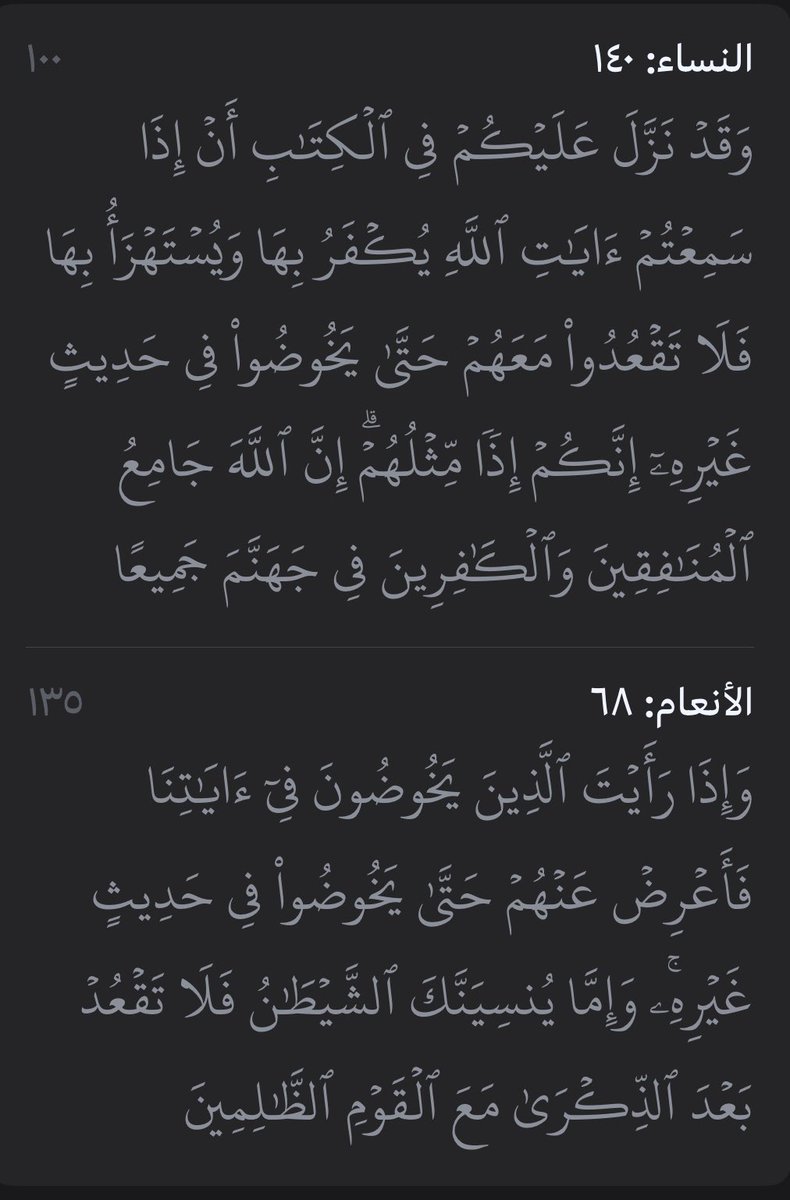 النساء: ١٤٠
١٠٠
وَقَدۡ نَزَّلَ عَلَيۡكُمۡ فِي ٱلۡكِتَٰبِ أَنۡ إِذَا
سَمِعۡتُمۡ ءَايَٰتِ ٱللَّهِ يُكۡفَرُ بِهَا وَيُسۡتَهۡزَأُ بِهَا
فَلَا تَقۡعُدُواْ مَعَهُمۡ حَتَّىٰ يَخُوضُواْ فِي حَدِيثٍ
غَيۡرِهِۦٓ إِنَّكُمۡ إِذَا مِّثۡلُهُمۡۗ إِنَّ ٱللَّهَ جَامِعُ
ٱلۡمُنَٰفِقِينَ وَٱلۡكَٰفِرِينَ فِي جَهَنَّمَ جَمِيعًا
الأنعام: ٦٨
١٣٥
وَإِذَا رَأَيۡتَ ٱلَّذِينَ يَخُوضُونَ فِيٓ ءَايَٰتِنَا
فَأَعۡرِضۡ عَنۡهُمۡ حَتَّىٰ يَخُوضُواْ فِي حَدِيثٍ
غَيۡرِهِۦۚ وَإِمَّا يُنسِيَنَّكَ ٱلشَّيۡطَٰنُ فَلَا تَقۡعُدۡ
بَعۡدَ ٱلذِّكۡرَىٰ مَعَ ٱلۡقَوۡمِ ٱلظَّٰلِمِينَ